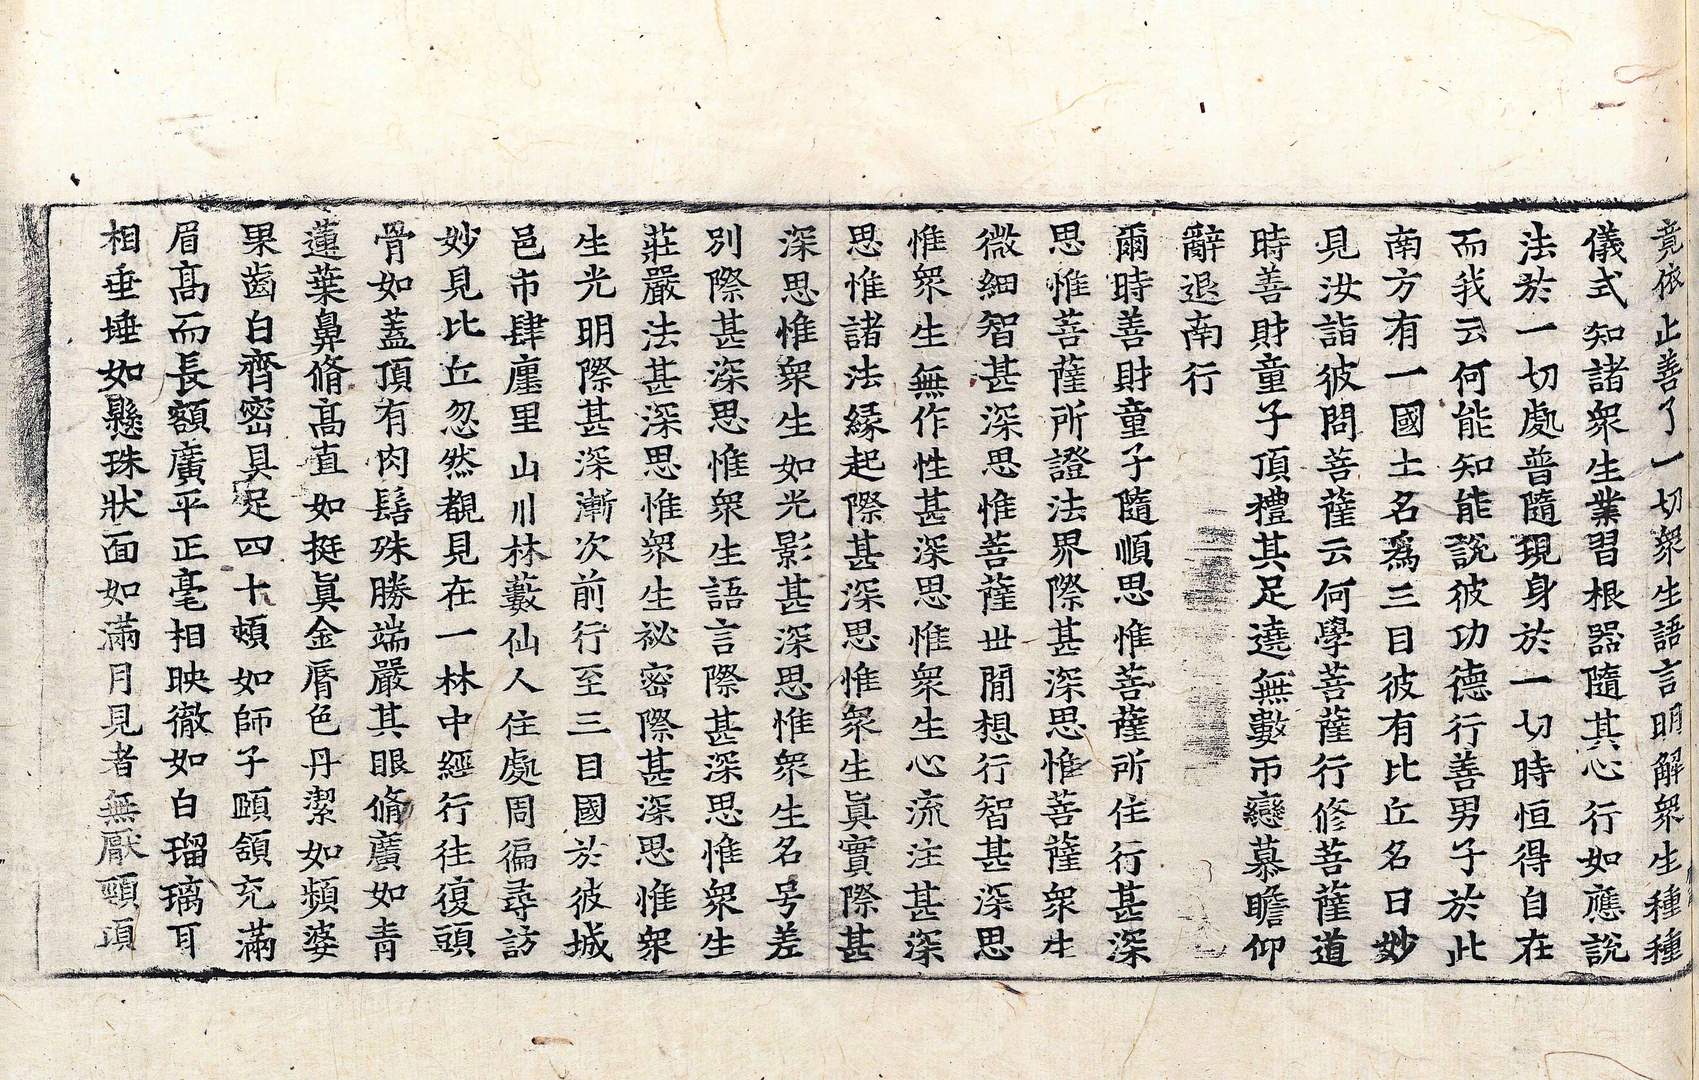 竟依止善了一切衆生語言明解衆生種種
儀式知諸衆生業習根器隨其心行如應說
法於一切處普隨現身於一切時恒得自在
而我云何能知能說彼功德行善男子於此
南方有一國土名爲三目彼有比丘名曰妙
見汝詣彼問菩薩云何學菩薩行修菩薩道
時善財童子頂禮其足遶無數帀戀慕瞻仰
辭退南行
爾時善財童子隨順思惟菩薩所住行甚深
思惟菩薩所證法界際甚深思惟菩薩衆生
微細智甚深思惟菩薩世間想行智甚深思
惟衆生無作性甚深思惟衆生心流注甚深
思惟諸法緣起際甚深思惟衆生眞實際甚
深思惟衆生如光影甚深思惟衆生名号差
別際甚深思惟衆生語言際甚深思惟衆生
莊嚴法甚深思惟衆生祕密際甚深思惟衆
生光明際甚深漸次前行至三目國於彼城
邑市肆廛里山川林藪仙人住處周徧尋訪
妙見比丘忽然覩見在一林中經行往復頭
骨如蓋頂有肉髻殊勝端嚴其眼脩廣如青
蓮葉鼻脩高直如挺眞金脣色丹潔如頻婆
果齒白齊密具足四十頰如師子頤頷充滿
眉高而長額廣平正毫相映徹如白瑠璃耳
相垂埵如懸珠狀面如滿月見者無厭頸項